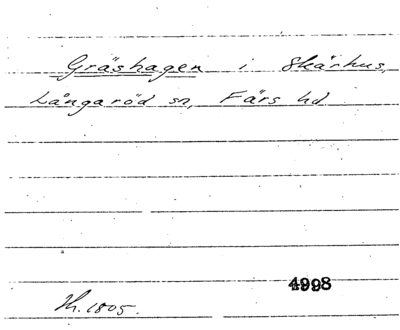 Gräshagen i Skärhus,
Långaröd sn, Färs hd
4998
Th. 1805.